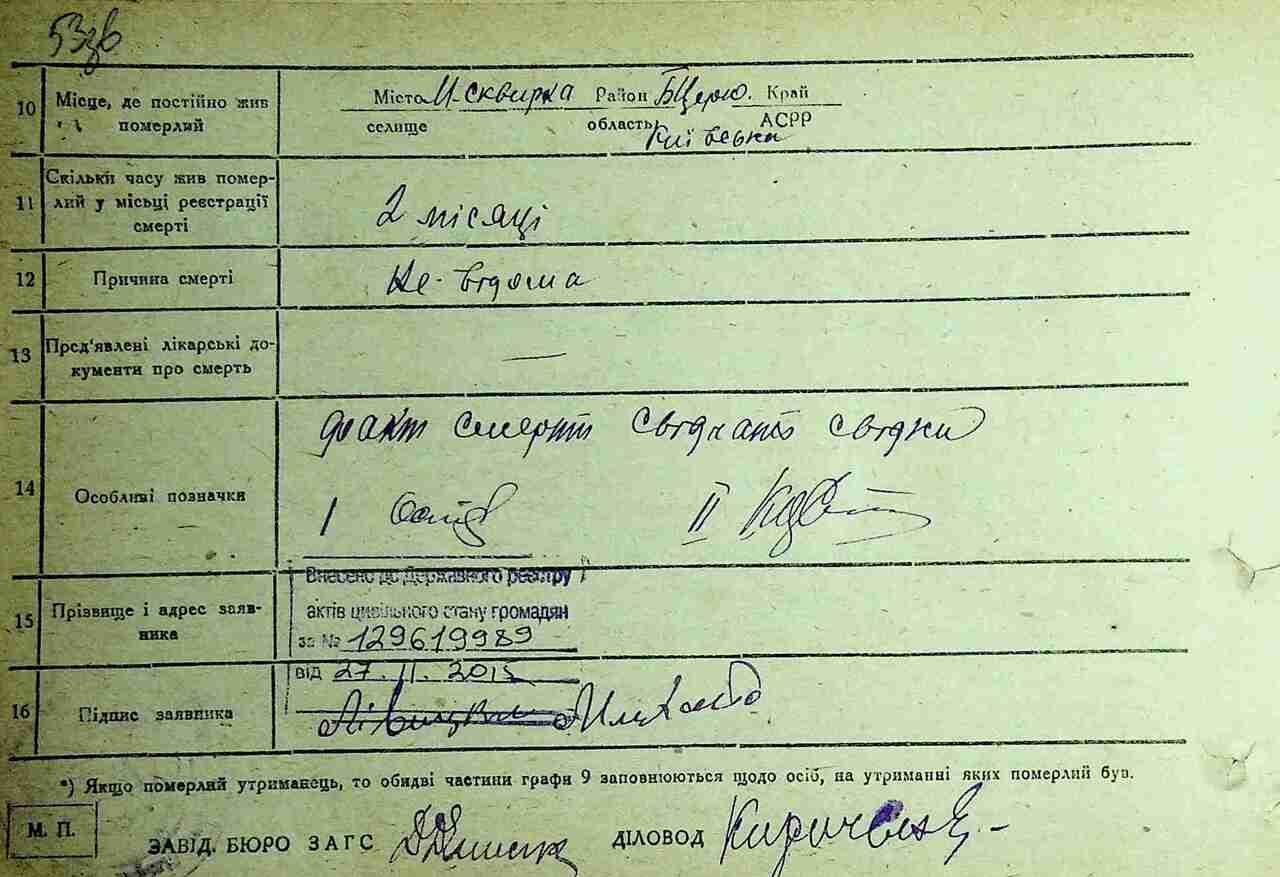 53зв
10 Місце, де постійно жив померлий
Місто М-Сквирка Район БЦерк. Край
селище область АСРР
Київська
11 Скільки часу жив померлий у місці реєстрації смерті
2 місяці
12 Причина смерті
Не-відома
13 Пред'явлені лікарські документи про смерть
—
14 Особливі позначки
факт смерти свідчать свідки
I II
Внесено до Державного реєстру
актів цивільного стану громадян
15 Прізвище і адрес заявника
за № 129619989
від 27.11.2015
16 Підпис заявника
*) Якщо померлий утриманець, то обидві частини графи 9 заповнюються щодо осіб, на утриманні яких померлий був.
М. П.
ЗАВІД. БЮРО ЗАГС ДІЛОВОД